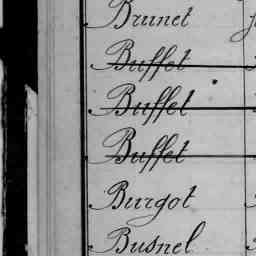 Brunet
Buffet
Buffet
Buffet
Burgot
Busnel